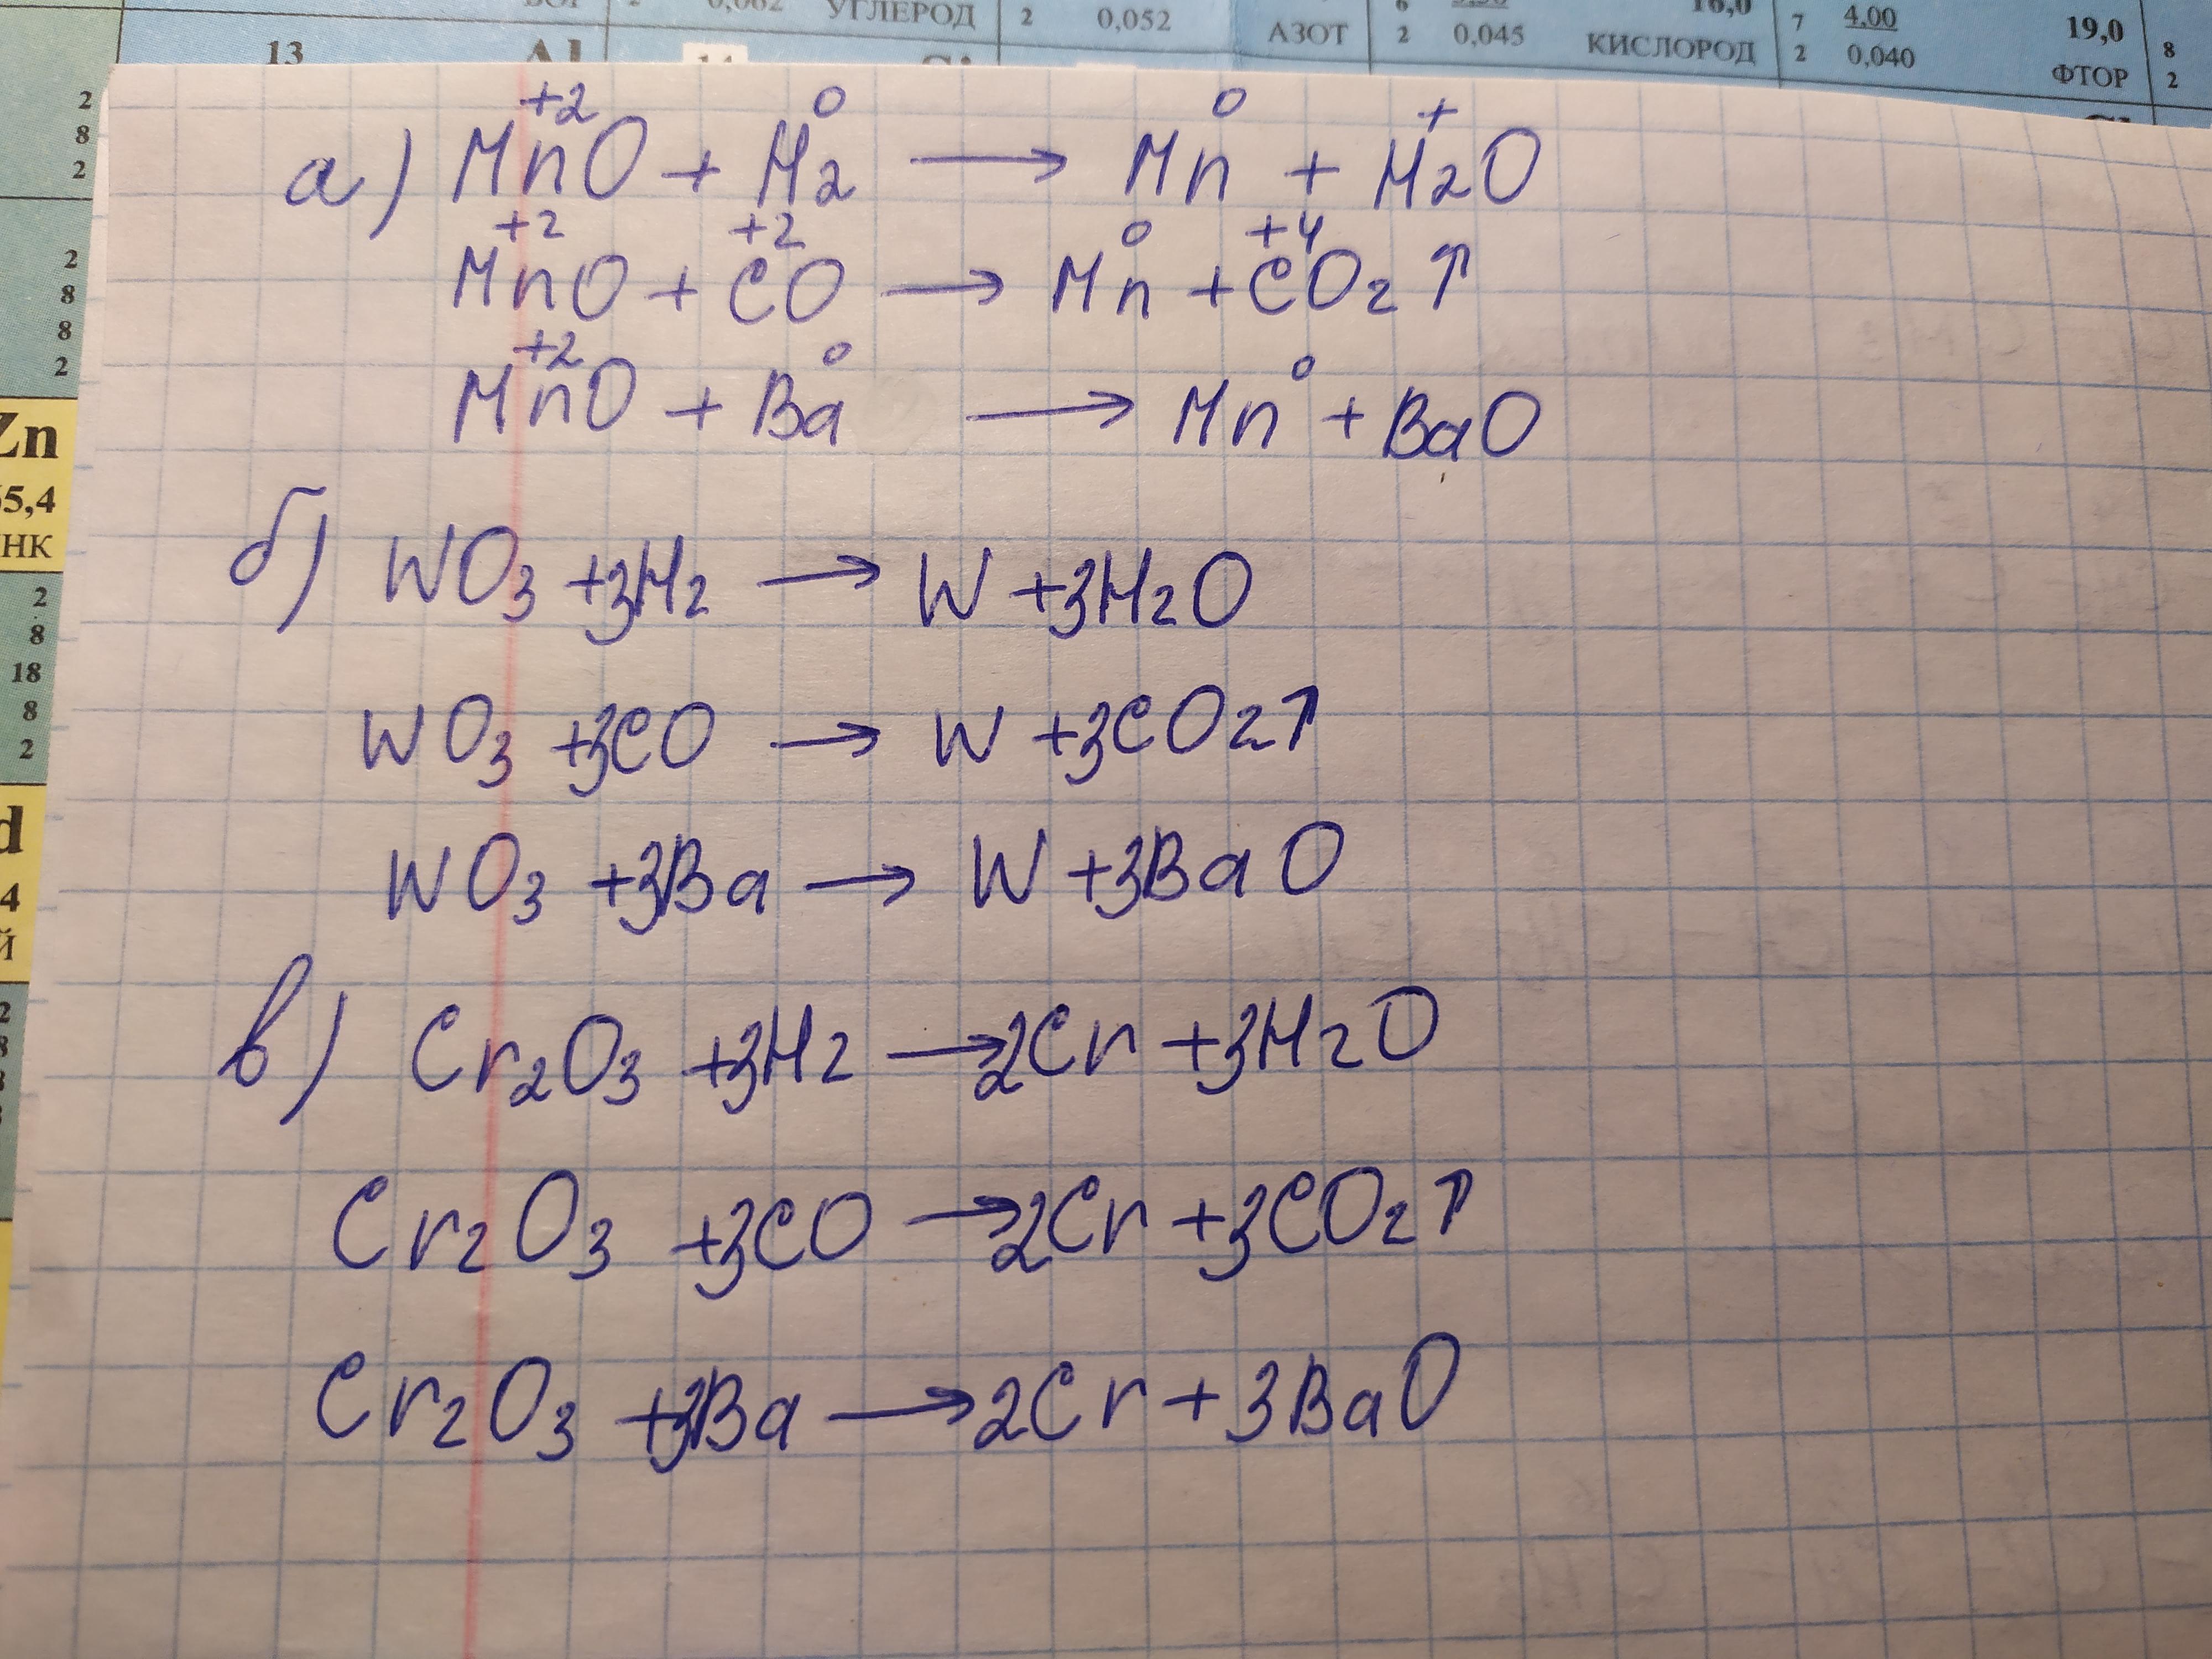 0,062 УГЛЕРОД 2 0,052 АЗОТ 2 0,045 КИСЛОРОД 7 2 4,00 0,040 19,0 ФТОР 8 2
13 Al
2
8
2
2
8
8
2
Zn
65,4
НК
2
8
18
8
2
d
4
Й
+2 0 0 +
а) MnO + H2 → Mn + H2O
+2 +2 0 +4
MnO + CO → Mn + CO2 ↑
+2 0 0
MnO + Ba → Mn + BaO
б) WO3 +3H2 → W +3H2O
WO3 +3CO → W +3CO2↑
WO3 +3Ba → W +3BaO
в) Cr2O3 +3H2 → 2Cr +3H2O
Cr2O3 +3CO → 2Cr +3CO2↑
Cr2O3 +3Ba → 2Cr + 3BaO